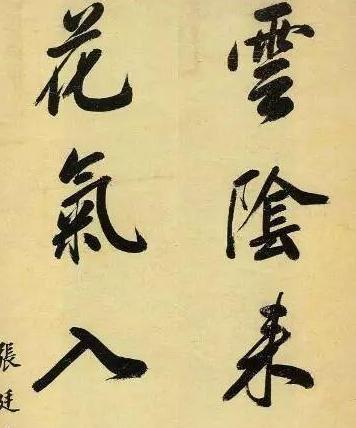 雲陰來
花氣入
張廷